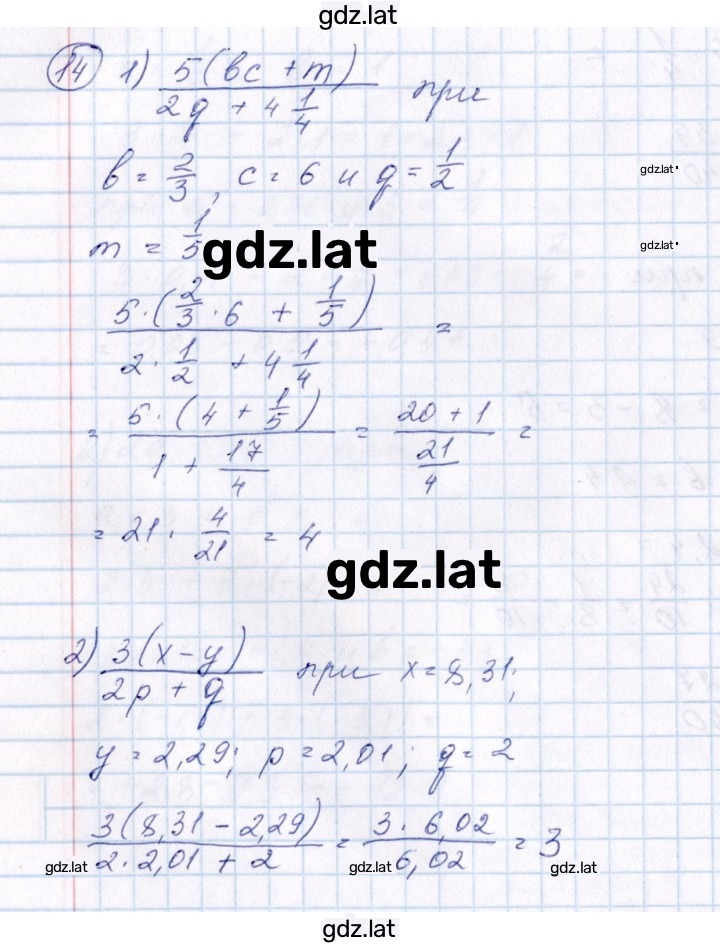 gdz.lat
14 1) 5(bc + m) / (2q + 4 1/4) при
b = 2/3, c = 6 и q = 1/2
gdz.lat
m = 1/5
gdz.lat
gdz.lat
5·(2/3 · 6 + 1/5) / (2 · 1/2 + 4 1/4) =
= 5·(4 + 1/5) / (1 + 17/4) = (20 + 1) / (21/4) =
= 21 · 4/21 = 4
gdz.lat
2) 3(x-y) / (2p + q) при x = 8,31;
y = 2,29; p = 2,01; q = 2
3(8,31 - 2,29) / (2 · 2,01 + 2) = 3 · 6,02 / 6,02 = 3
gdz.lat gdz.lat gdz.lat
gdz.lat